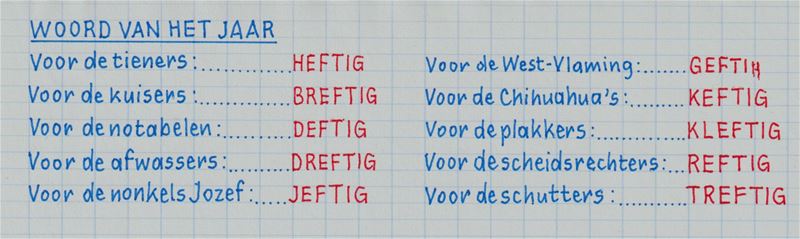 WOORD VAN HET JAAR
Voor de tieners:.............HEFTIG
Voor de kuisers:.............BREFTIG
Voor de notabelen:..........DEFTIG
Voor de afwassers:.........DREFTIG
Voor de nonkels Jozef:.....JEFTIG
Voor de West-Vlaming:.......GEFTIH
Voor de Chihuahua's:........KEFTIG
Voor de plakkers:............KLEFTIG
Voor de scheidsrechters:...REFTIG
Voor de schutters:..........TREFTIG